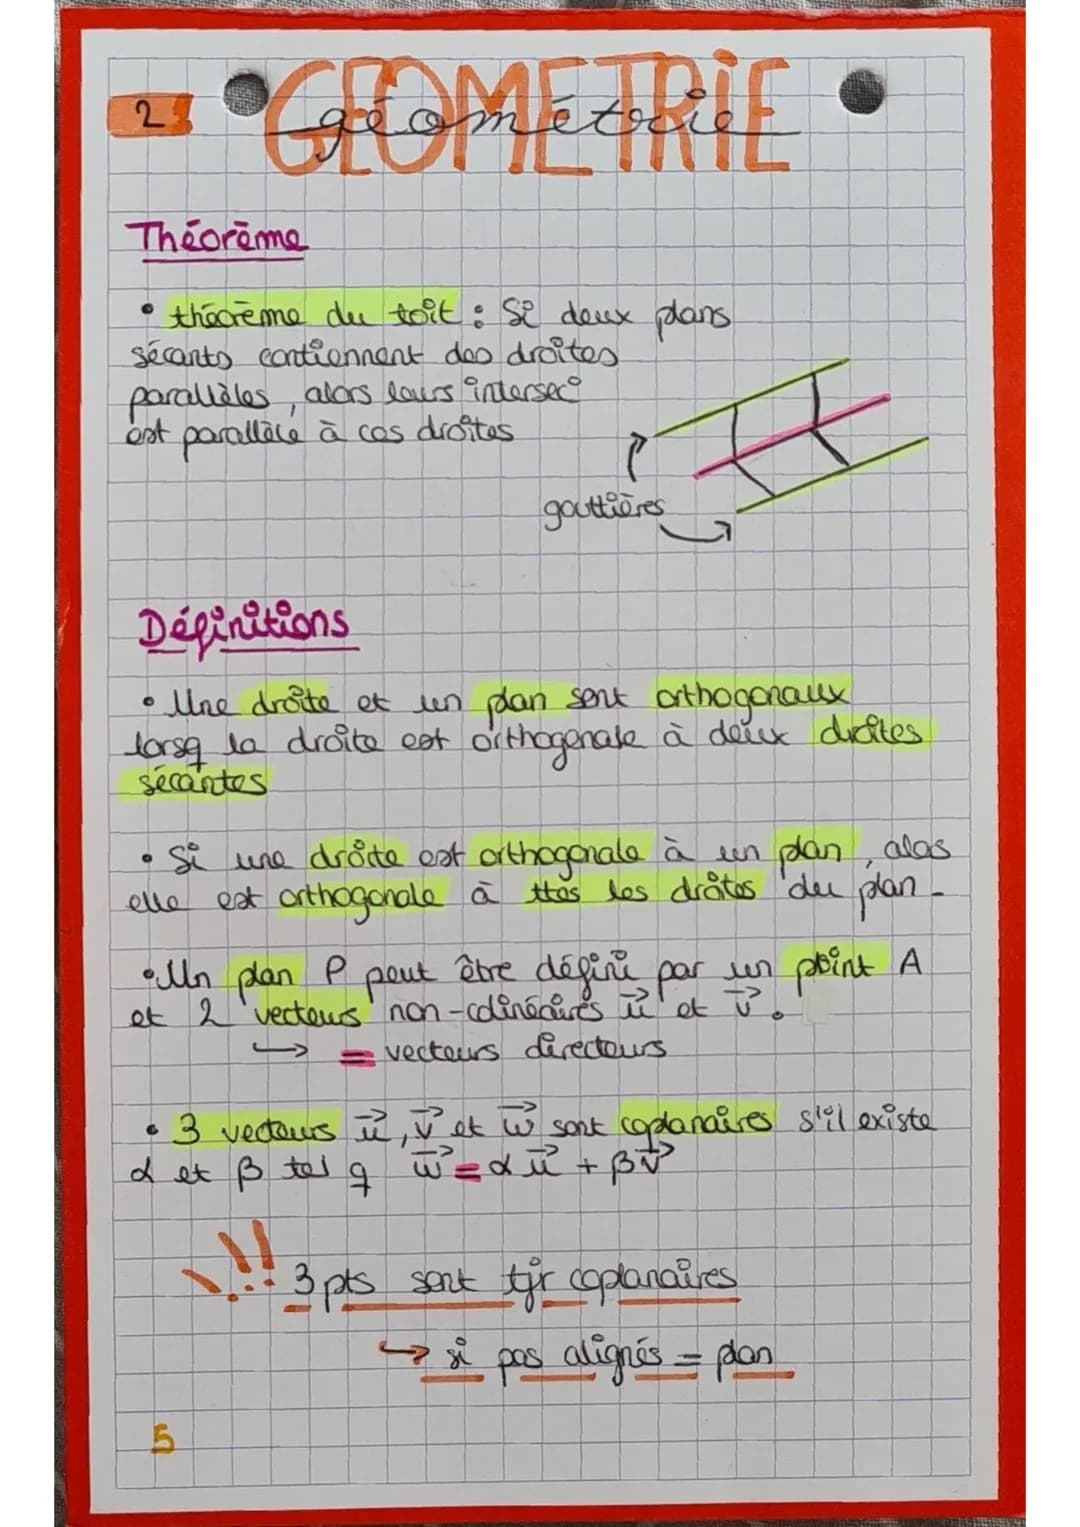 2
GEOMETRIE
géométrie
Théorème
• théorème du toit : Si deux plans
sécants contiennent des droites
parallèles, alors leurs intersec°
est parallèle à ces droites
gouttières
Définitions
• Une droite et un plan sont orthogonaux
lorsq la droite est orthogonale à deux droites
sécantes
• Si une droite est orthogonale à un plan, alors
elle est orthogonale à ttes les droites du plan.
• Un plan P peut être défini par un point A
et 2 vecteurs non-colinéaires u⃗ et v⃗.
↳ = vecteurs directeurs
• 3 vecteurs u⃗, v⃗ et w⃗ sont coplanaires s'il existe
α et β tel q w⃗ = α u⃗ + β v⃗
!!! 3 pts sont tjr coplanaires
↳ si pas alignés = plan
5